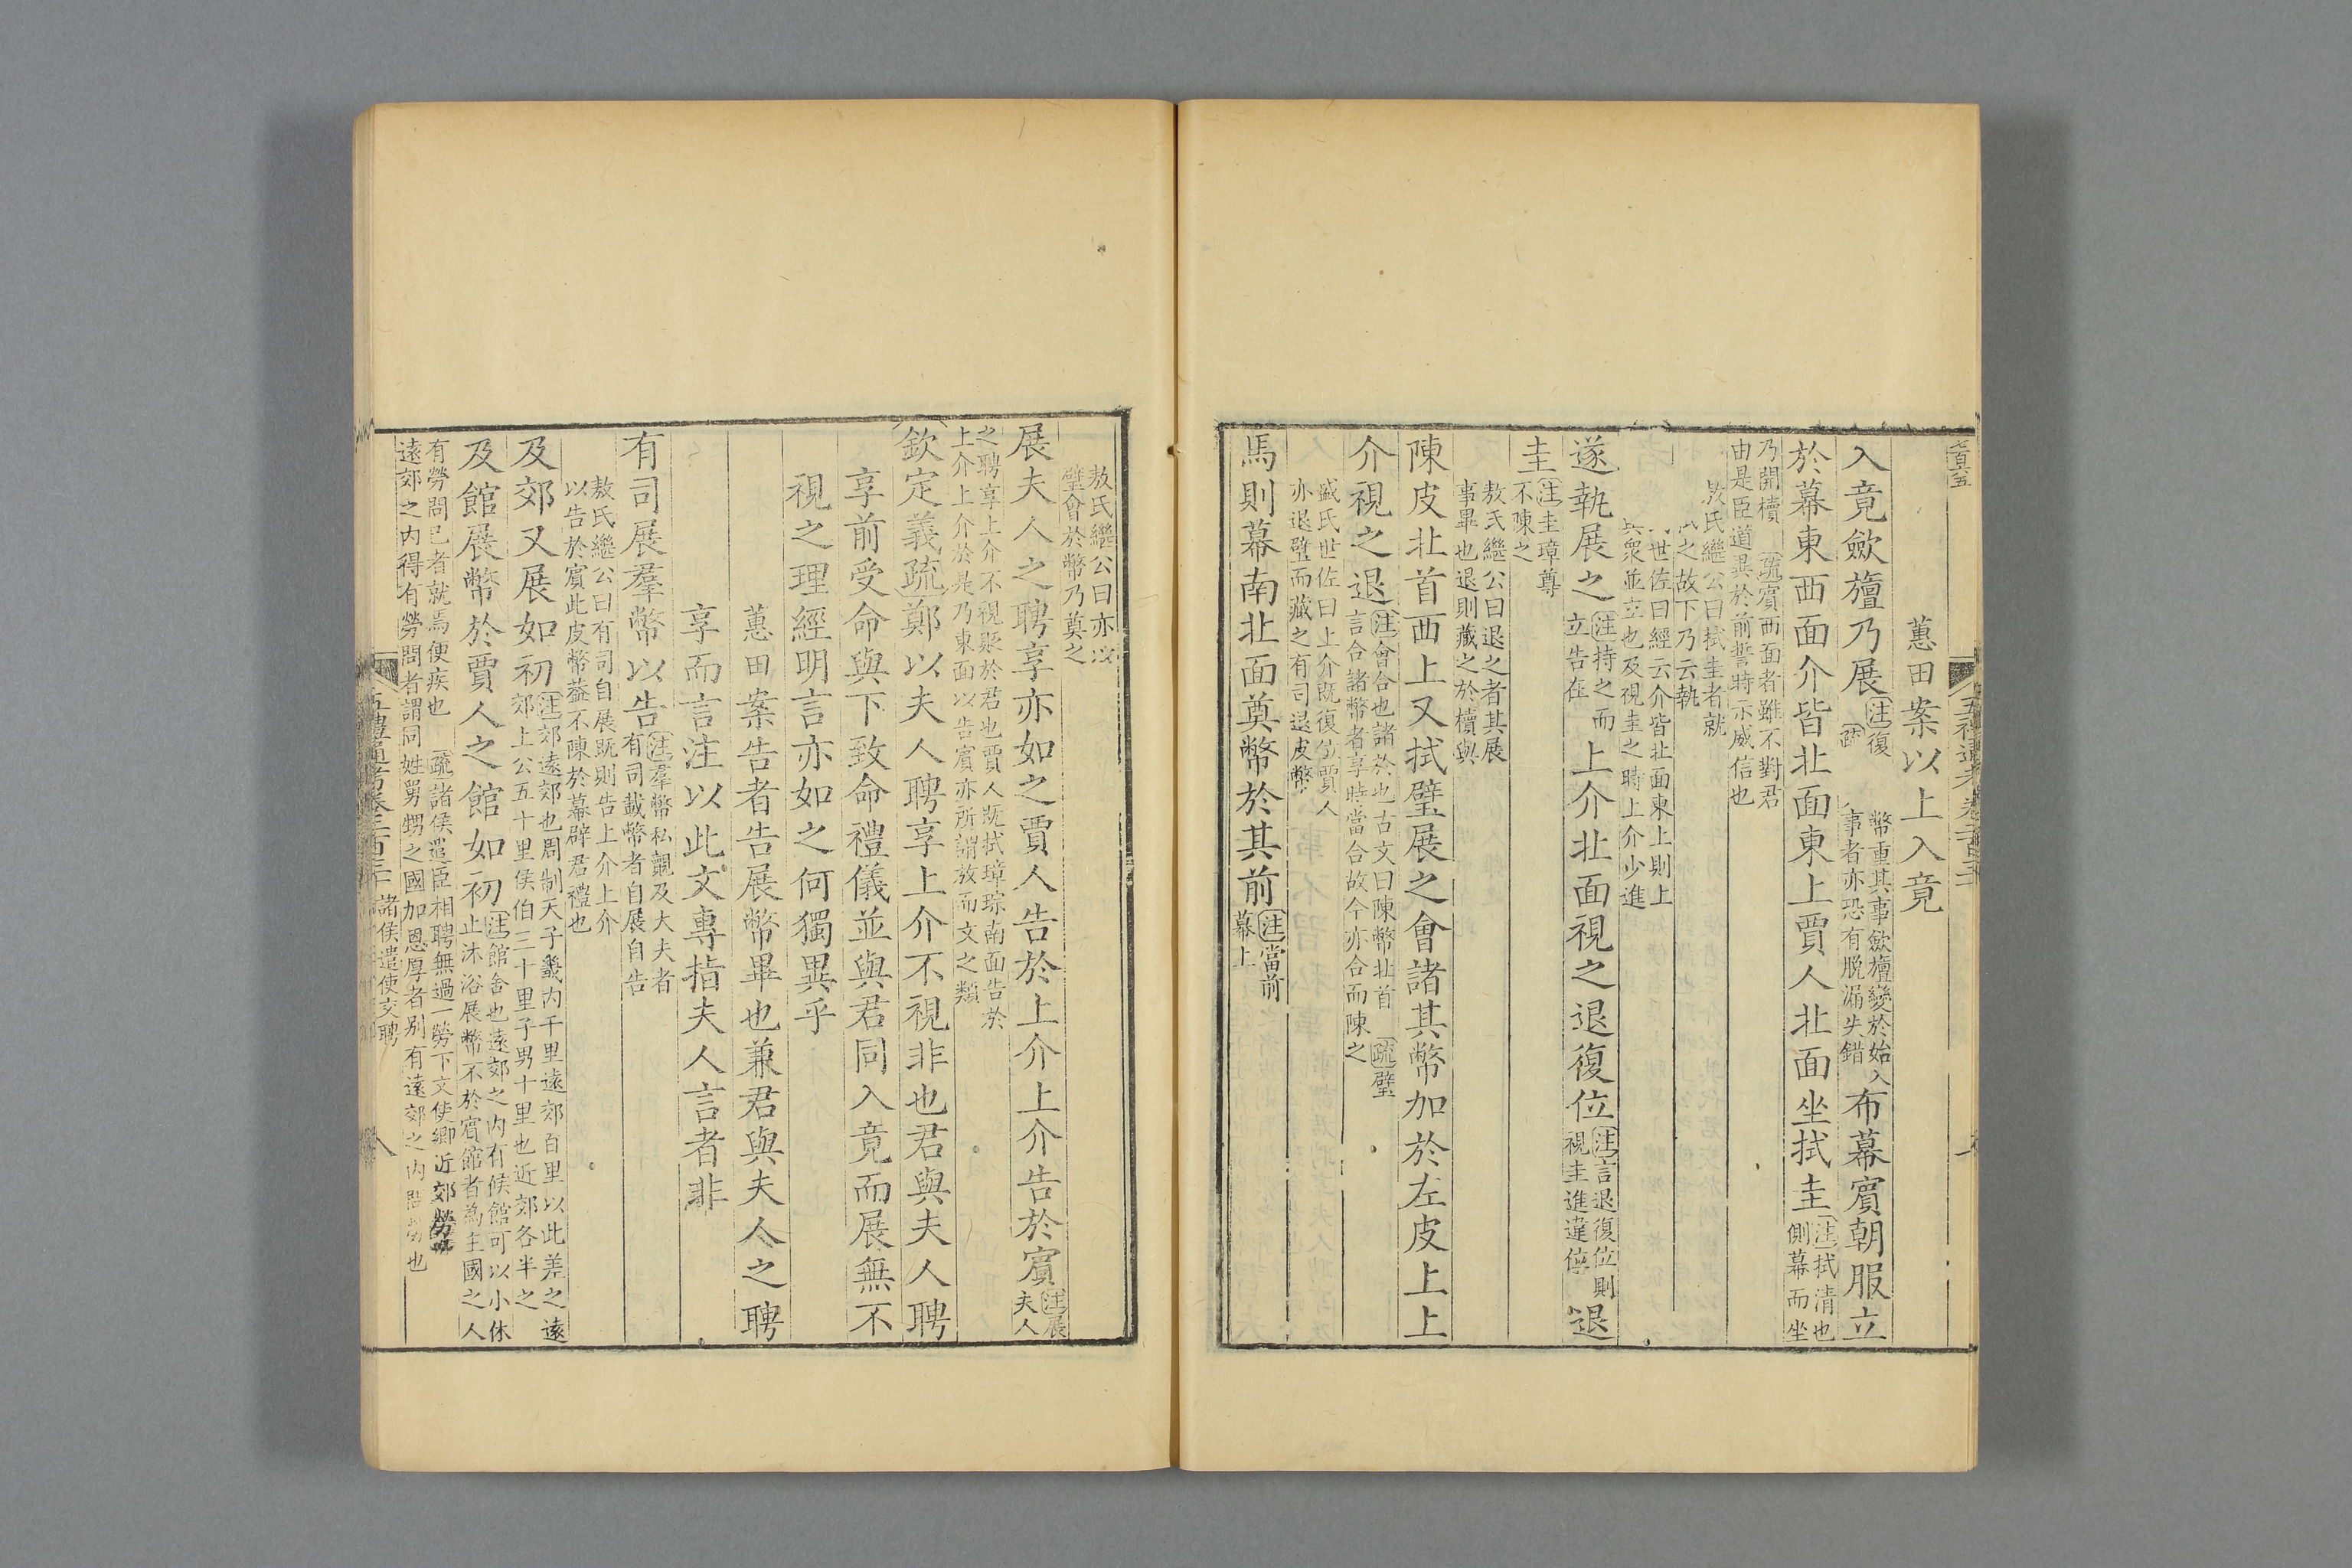 蕙田案以上入竟
入竟斂旜乃展注復
幣重其事斂旜變於始入
事者亦恐有脫漏失錯
布幕賓朝服立
於幕東西面介皆北面東上賈人北面坐拭圭注拭清也
側幕而坐
乃開櫝 疏賓西面者雖不對君
由是臣道異於前誓時示威信也
敖氏繼公曰拭圭者就
之故下乃云執
世佐曰經云介皆北面東上則上
衆並立也及視圭之時上介少進
遂執展之注持之而
立告在
上介北面視之退復位注言退復位則
視圭進違位
退
圭注圭璋尊
不陳之
敖氏繼公曰退之者其展
事畢也退則藏之於櫝與
陳皮北首西上又拭璧展之會諸其幣加於左皮上上
介視之退注會合也諸於也古文曰陳幣北首 疏璧
言合諸幣者享時當合故今亦合而陳之
盛氏世佐曰上介既復位賈人
亦退璧而藏之有司退皮幣
馬則幕南北面奠幣於其前注當前
幕上
敖氏繼公曰亦以
璧會於幣乃奠之
展夫人之聘享亦如之賈人告於上介上介告於賓注展
夫人
之聘享上介不視貶於君也賈人既拭璋琮南面告於
上介上介於是乃東面以告賓亦所謂放而文之類
欽定義疏鄭以夫人聘享上介不視非也君與夫人聘
享前受命與下致命禮儀並與君同入竟而展無不
視之理經明言亦如之何獨異乎
蕙田案告者告展幣畢也兼君與夫人之聘
享而言注以此文專指夫人言者非
有司展羣幣以告注羣幣私覿及大夫者
有司載幣者自展自告
敖氏繼公曰有司自展既則告上介上介
以告於賓此皮幣葢不陳於幕辟君禮也
及郊又展如初注郊遠郊也周制天子畿內千里遠郊百里以此差之遠
郊上公五十里侯伯三十里子男十里也近郊各半之
及館展幣於賈人之館如初注館舍也遠郊之內有候館可以小休
止沐浴展幣不於賓館者爲主國之人
有勞問己者就焉便疾也 疏諸侯遣臣相聘無過一勞下文使卿近郊勞
遠郊之內得有勞問者謂同姓舅甥之國加恩厚者別有遠郊之內問勞也
諸侯遣使交聘